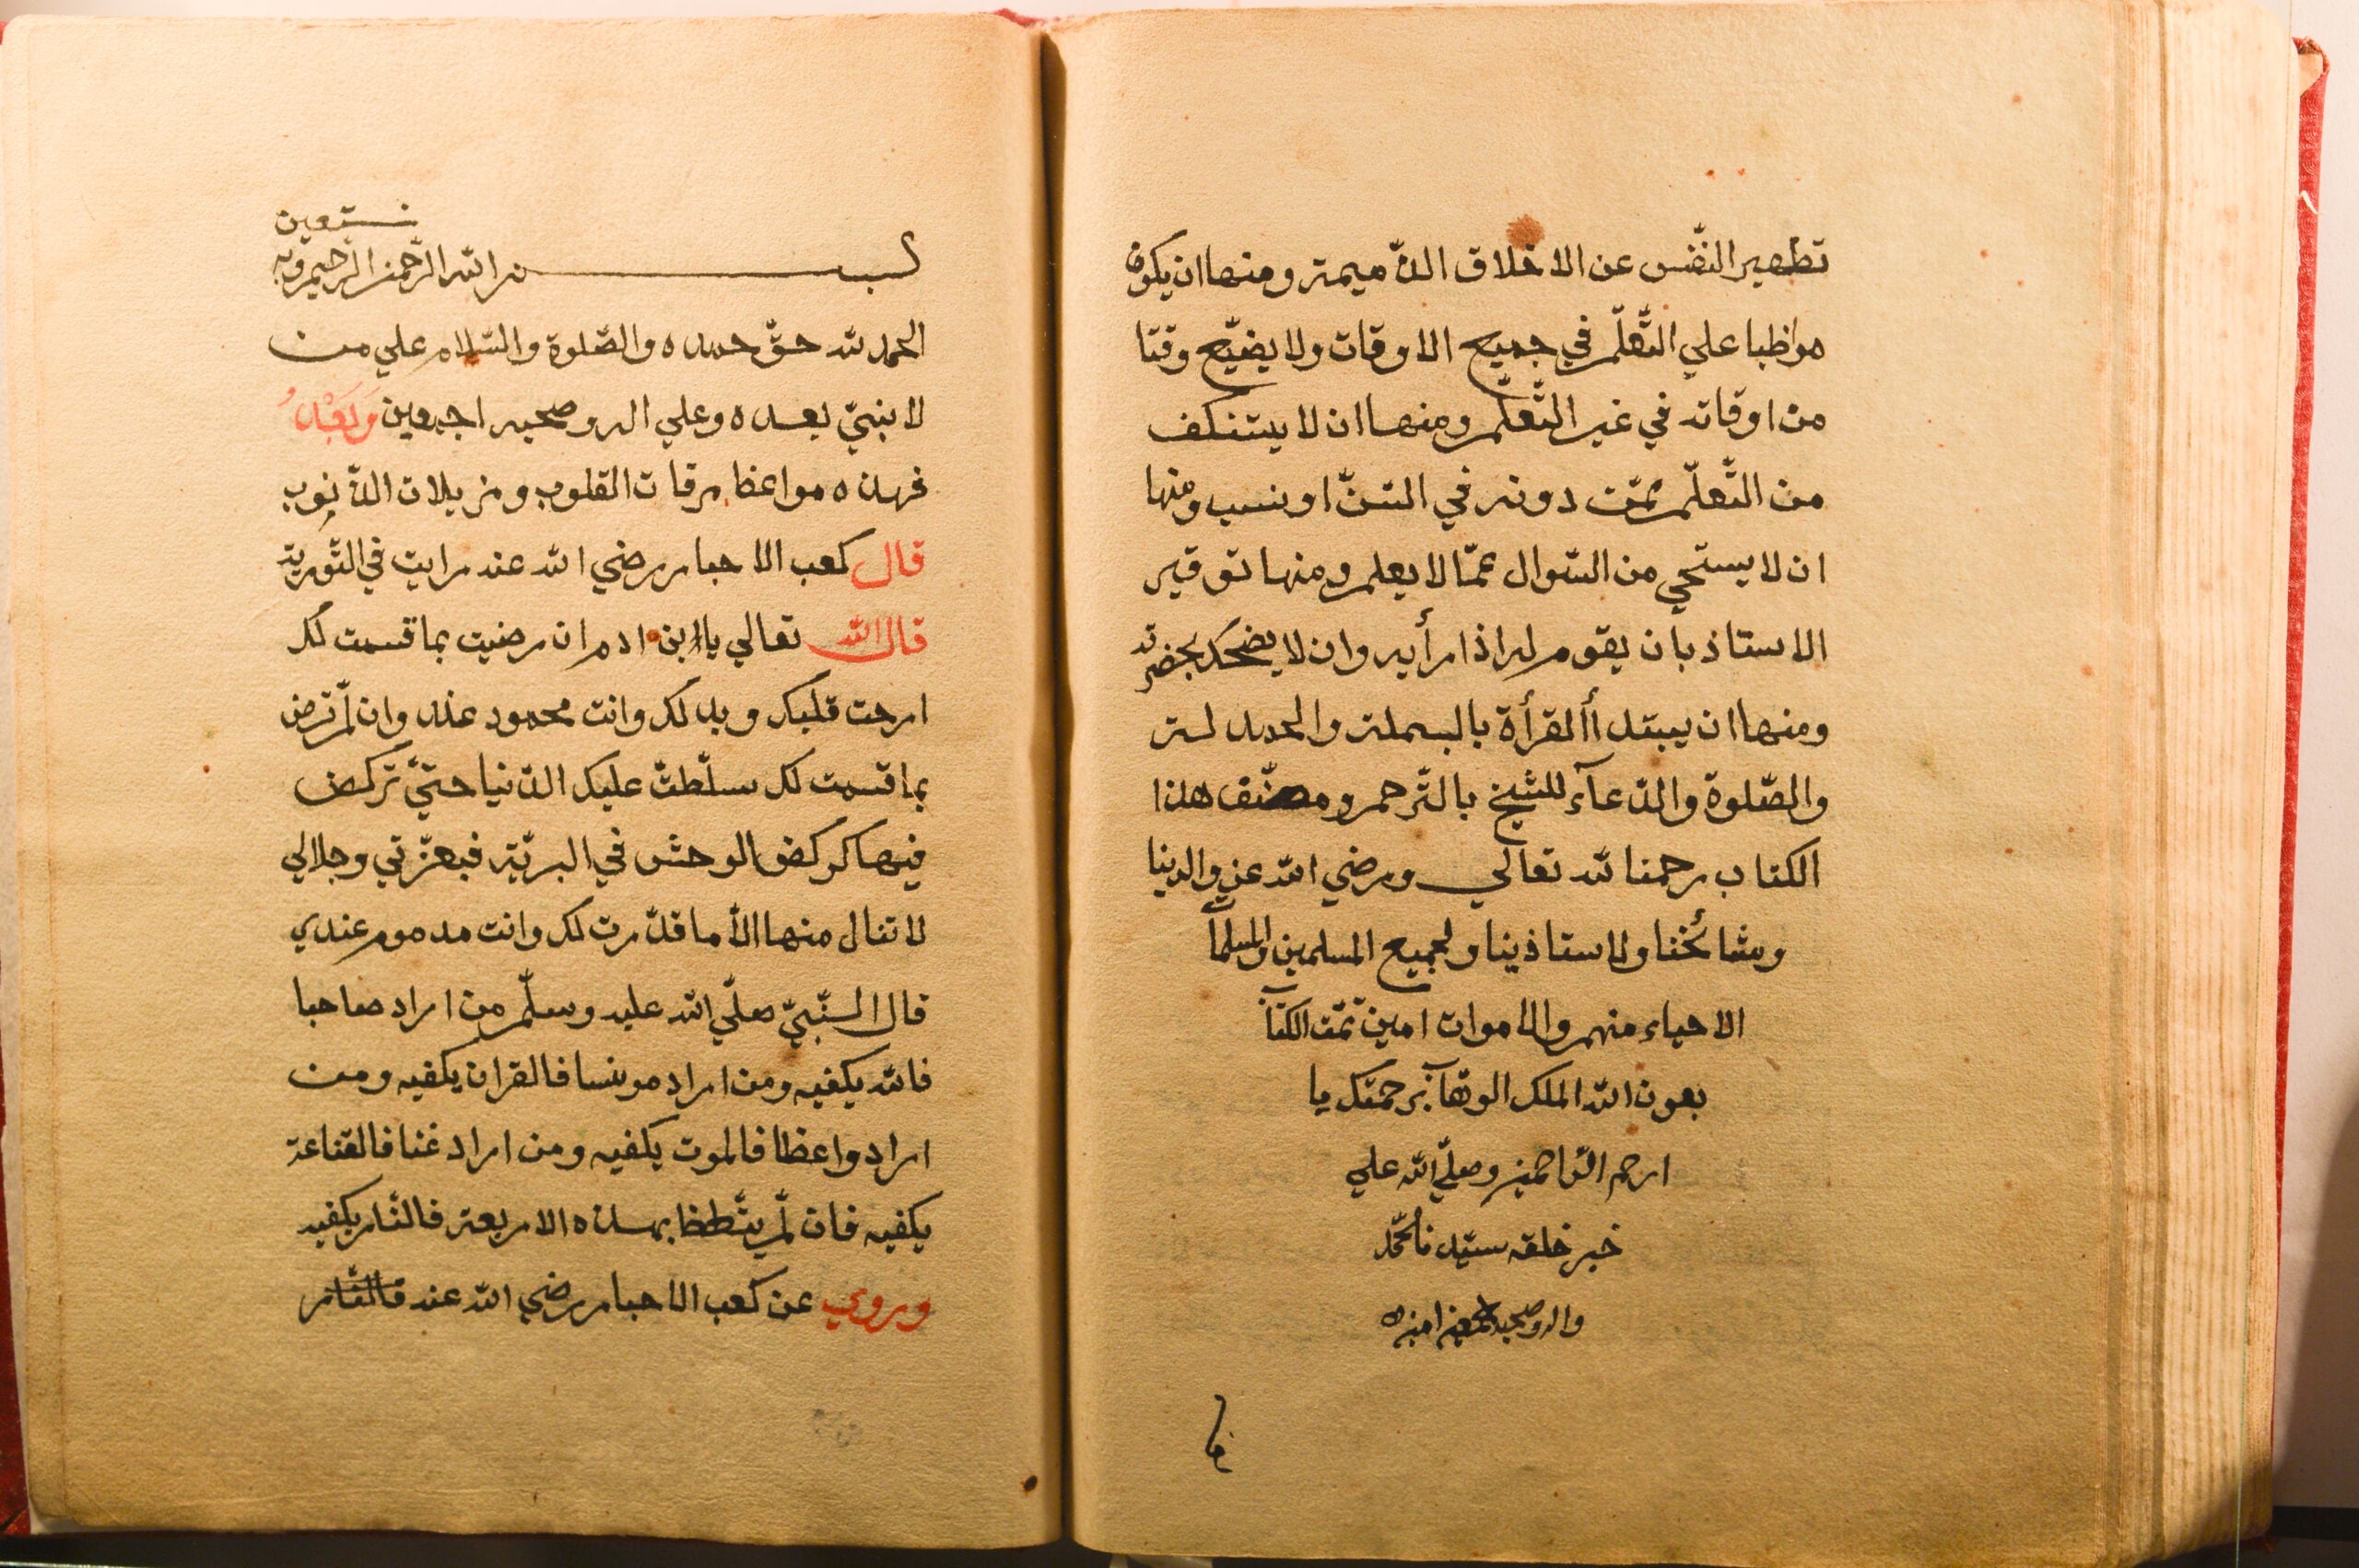 تطهير النّفس عن الاخلاق الذّميمة ومنها ان يكون
مواظبا علي التّعلّم في جميع الاوقات ولا يضيّع وقتا
من اوقاته في غير التّعلّم ومنها ان لا يستنكف
من التّعلّم ممّن دونه في السّنّ او نسب ومنها
ان لا يستحي من السّوال عمّا لا يعلم ومنها توقير
الاستاذ بان يقوم له اذا رأيه وان لا يضحك بحضرته
ومنها ان يبتدأ القرأة بالبسملة والحمد لة
والصّلوة والدّعآء للشّيخ بالتّرحم ومصنّف هذا
الكتاب رحمنا لله تعالي ورضي الله عني والدينا
ومشائخنا ولاستاذينا ولجميع المسلمين والمسلمآ
الاحياء منهم والاموات امين تمّت الكتآب
بعون الله الملك الوهّآب برحمتك يا
ارحم الرّاحمين وصلّي الله علي
خير خلقه سيّدنا محمّد
واله وصحبه اجمعين امين
بسم الله الرّحمن الرّحيم وبه
نستعين
الحمد لله حقّ حمده والصّلوة والسّلام علي من
لا نبيّ بعده وعلي اله وصحبه اجمعين وَبَعْدُ
فهذه مواعظ مرقات القلوب ومزيلات الذّنوب
قال كعب الاحبار رضي الله عنه رايت في التّورية
قال الله تعالي يا ابن ادم ان رضيت بما قسمت لك
ارحت قلبك وبدلك وانت محمود عند وان لّم ترض
بما قسمت لك سلّطتّ عليك الدّنيا حتيّ تركض
فيها كركض الوحش في البريّة فبعزّتي وجلالي
لا تنال منها الّا ما قدّرت لك وانت مدموم عندي
قال النّبيّ صلّي الله عليه وسلّم من اراد صاحبا
فالله يكفيه ومن اراد مونسا فالقران يكفيه ومن
اراد واعظا فالموت يكفيه ومن اراد غنا فالقناعة
يكفيه فان لّم يتّطظ بهذه الاربعة فالنّار يكفيه
وروي عن كعب الاحبار رضي الله عنه فالنّار